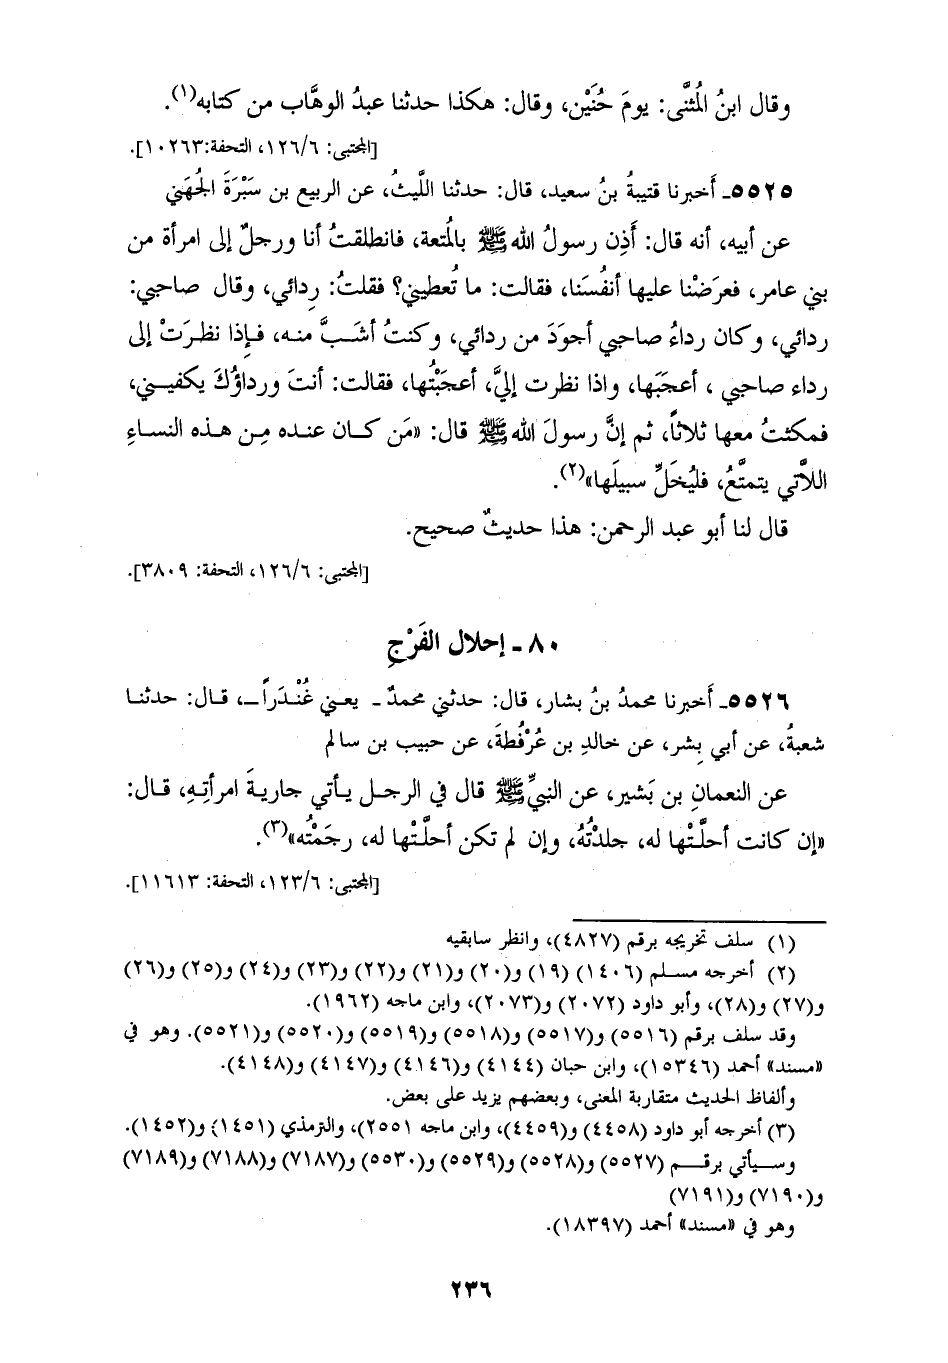 وقال ابنُ المُثنَّى: يومَ حُنَيْن، وقال: هكذا حدثنا عبدُ الوهَّاب من كتابه(١).
[المجتبى: ١٢٦/٦، التحفة:١٠٢٦٣].
٥٥٢٥ـ أَخبرنا قتيبةُ بنُ سعيد، قال: حدثنا اللَّيثُ، عن الربيع بن سَبْرَةَ الجُهَني
عن أبيه، أنه قال: أَذِن رسولُ الله ﷺ بالمُتعة، فانطلقتُ أنا ورجلٌ إلى امرأة من
بني عامر، فعرَضْنا عليها أنفُسَنا، فقالت: ما تُعطيني؟ فقلتُ: رِدائي، وقال صاحبي:
ردائي، وكان رداءُ صاحبي أجوَدَ من ردائي، وكنتُ أشَبَّ منه، فإذا نظرَتْ إلى
رداء صاحبي ، أعجَبَها، واذا نظرت إليَّ، أعجَبْتُها، فقالت: أنتَ ورداؤُكَ يكفيني،
فمكثتُ معها ثلاثاً، ثم إنَّ رسولَ الله ﷺ قال: «مَن كان عنده مِن هذه النساءِ
اللاَّتي يتمتَّعُ، فليُخَلِّ سبيلَها»(٢).
قال لنا أبو عبد الرحمن: هذا حديثٌ صحيح.
[المجتبى: ١٢٦/٦، التحفة: ٣٨٠٩].
٨٠ - إحلال الفَرْجِ
٥٥٢٦ـ أَخبرنا محمدُ بنُ بشار، قال: حدثني محمدٌ ـ يعني غُنْدَراً ـ، قال: حدثنا
شعبةُ، عن أبي بِشر، عن خالدِ بن عُرْفُطةَ، عن حبيب بن سالم
عن النعمانِ بن بَشير، عن النبيِّ ﷺ قال في الرجل يأتي جاريةَ امرأتِهِ، قال:
«إن كانت أحلَّتْها له، جلدْتُهُ، وإن لم تكن أحلَّتْها له، رجَمْتُه»(٣).
[المجتبى: ١٢٣/٦، التحفة: ١١٦١٣].
(١) سلف تخريجه برقم (٤٨٢٧)، وانظر سابقيه
(٢) أخرجه مسلم (١٤٠٦) (١٩) و(٢٠) و(٢١) و(٢٢) و(٢٣) و(٢٤) و(٢٥) و(٢٦)
و(٢٧) و(٢٨)، وأبو داود (٢٠٧٢) و(٢٠٧٣)، وابن ماجه (١٩٦٢).
وقد سلف برقم (٥٥١٦) و(٥٥١٧) و(٥٥١٨) و(٥٥١٩) و(٥٥٢٠) و(٥٥٢١). وهو في
«مسند» أحمد (١٥٣٤٦)، وابن حبان (٤١٤٤) و(٤١٤٦) و(٤١٤٧) و(٤١٤٨).
وألفاظ الحديث متقاربة المعنى، وبعضهم يزيد على بعض.
(٣) أخرجه أبو داود (٤٤٥٨) و(٤٤٥٩)، وابن ماجه ٢٥٥١)، والترمذي (١٤٥١) و(١٤٥٢).
وسيأتي برقم (٥٥٢٧) و(٥٥٢٨) و(٥٥٢٩) و(٥٥٣٠) و(٧١٨٧) و(٧١٨٨) و(٧١٨٩)
و(٧١٩٠) و(٧١٩١)
وهو في «مسند» أحمد (١٨٣٩٧).
٢٣٦